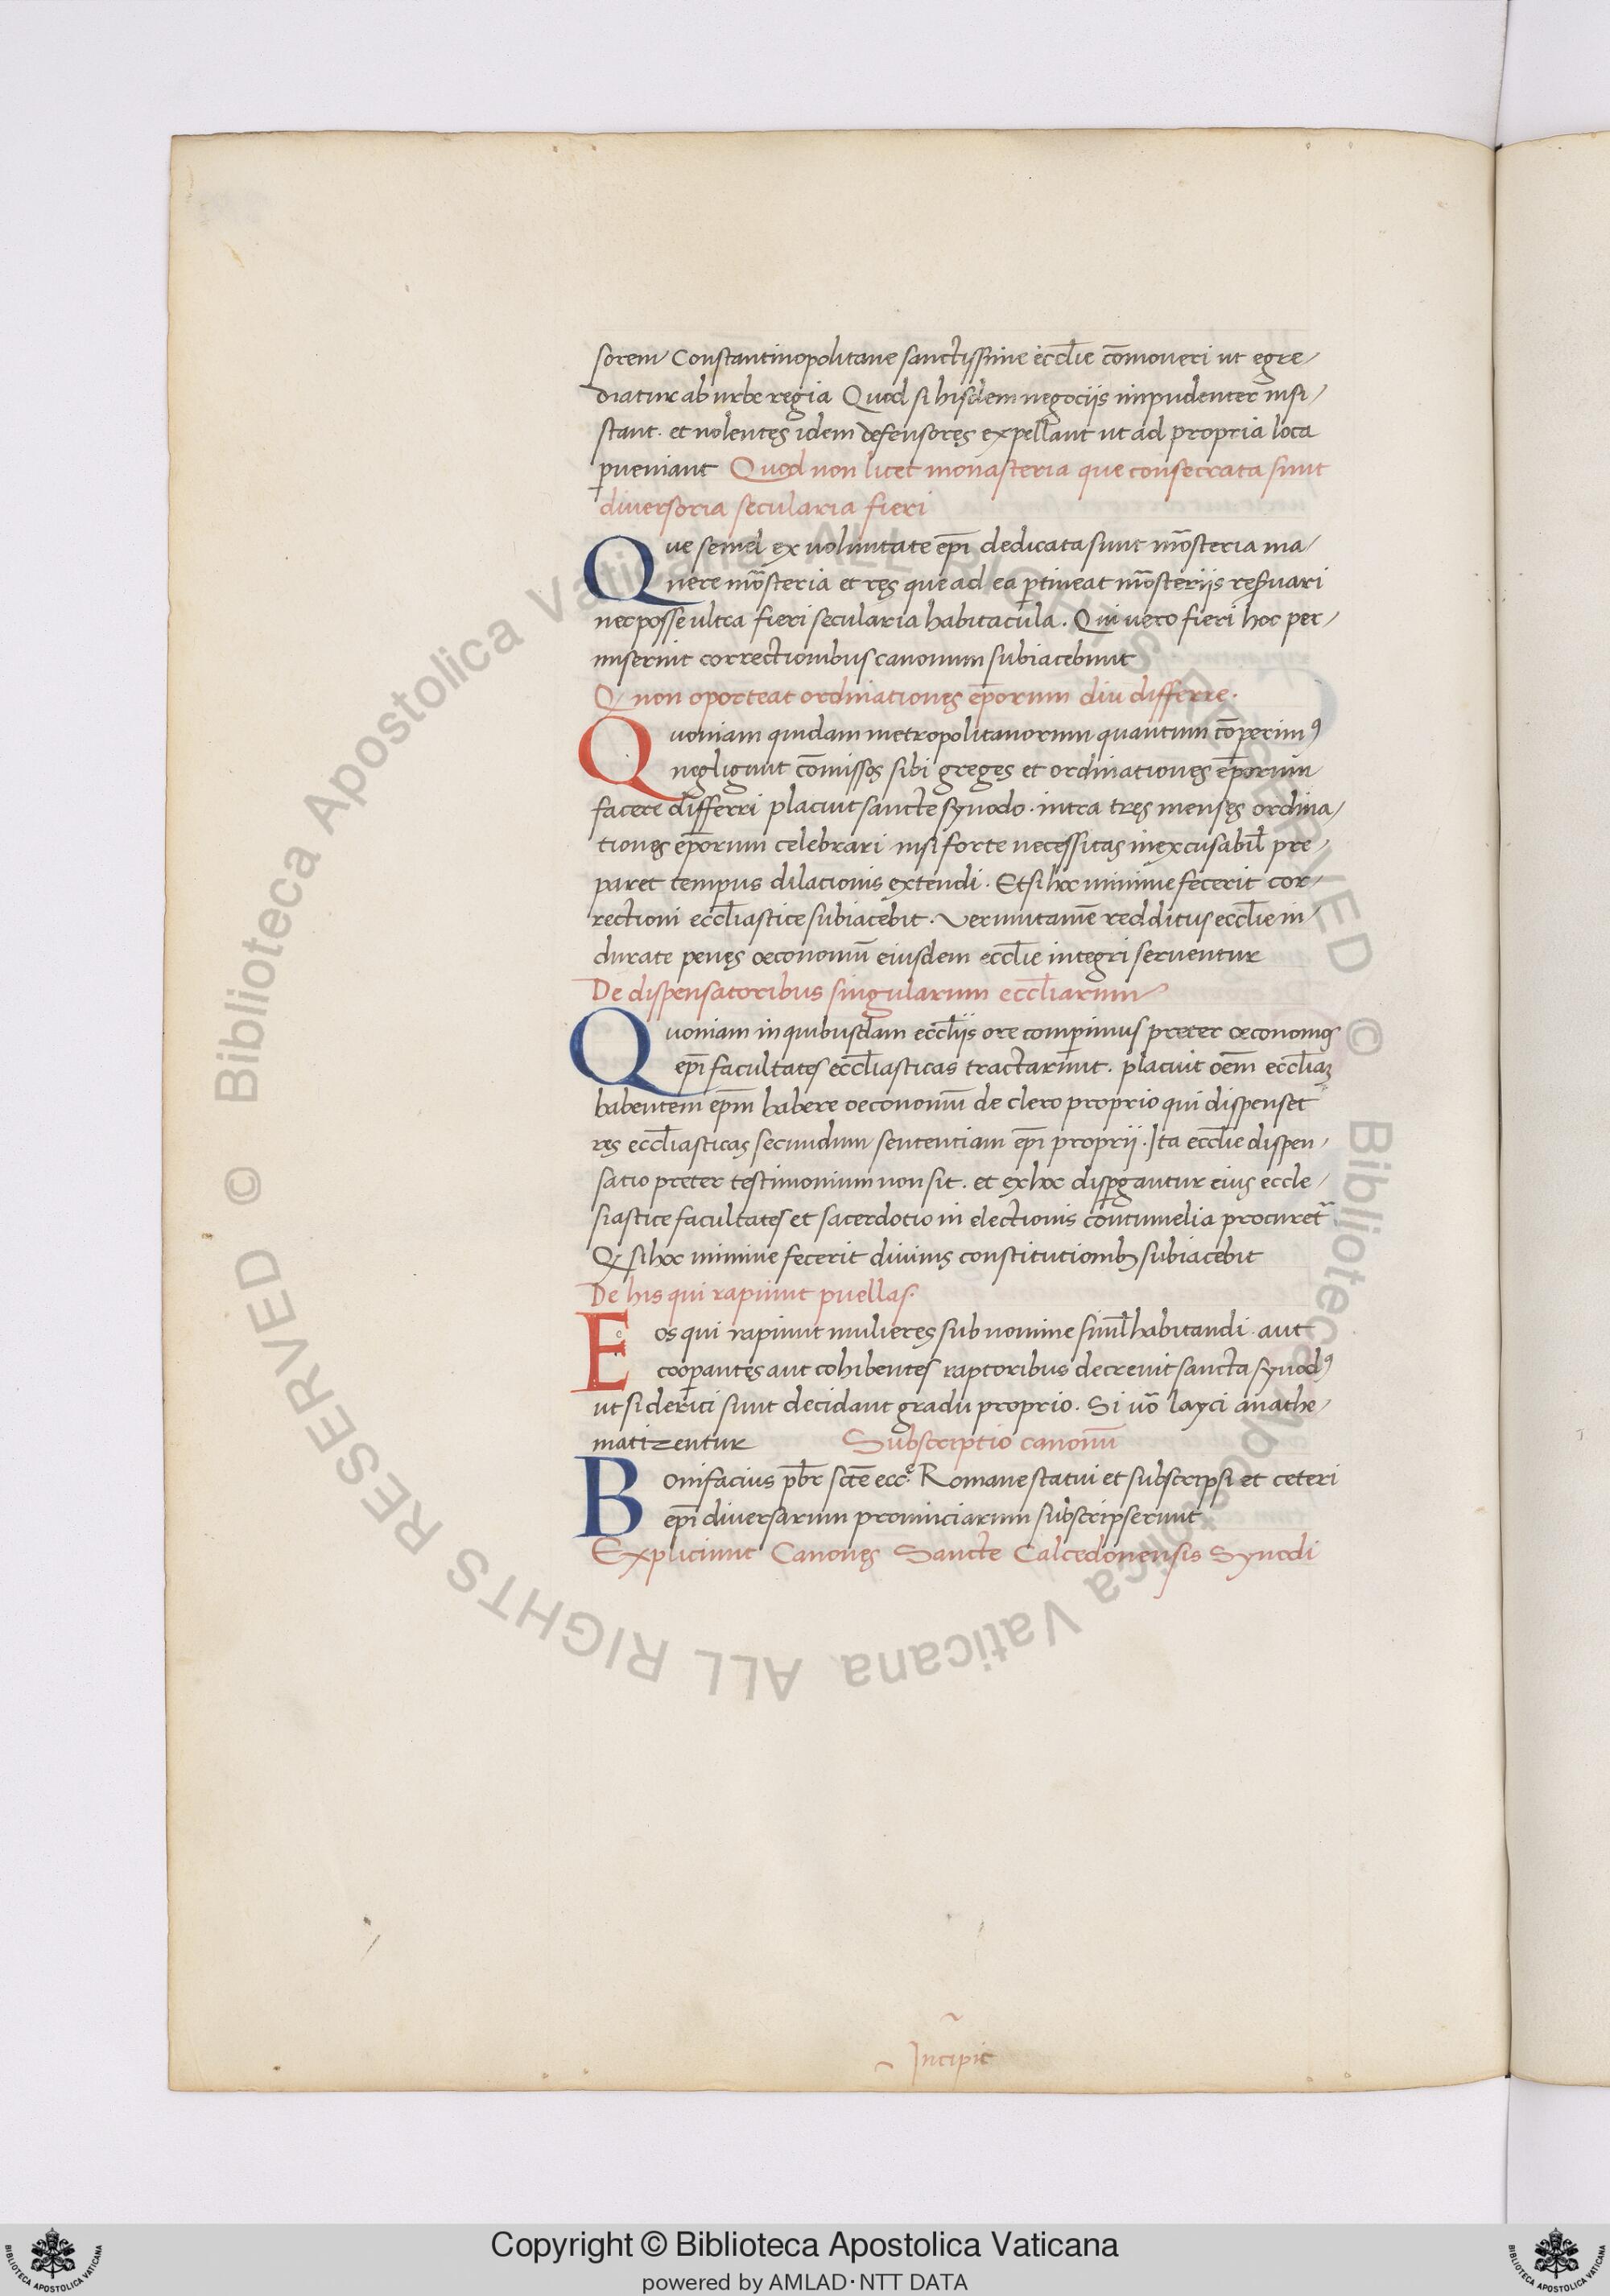 sorem Constantinopolitane sanctissime eccl̄ie cōmoueri ut egre/
diatur ab urbe regia Quod si hisdem negociis impudenter insi/
stant. et nolentes idem defensores expellant ut ad propria loca
ꝑueniant Quod non licet monasteria que consecrata sunt
diuersoria secularia fieri
Que semel ex uoluntate ep̄i dedicata sunt mōsteria ma/
nere mōsteria et res que ad ea ꝑtineat mōsteriis reẜuari
nec posse ultra fieri secularia habitacula. Qui uero fieri hoc per/
miserint correctionibus canonum subiacebunt
Q non oporteat ordinationes ep̄orum diu differre.
Quoniam quidam metropolitanorum quantum cōperimꝰ
negligunt cōmissos sibi greges et ordinationes ep̄orum
facere differri placuit sancte synodo. intra tres menses ordina/
tiones ep̄orum celebrari nisi forte necessitas inexcusabil̄ pre/
paret tempus dilationis extendi. Et si hoc minime fecerit cor/
rectioni eccl̄iastice subiacebit. Verumtam̄e redditus eccl̄ie in/
durate penes oeconomū eiusdem eccl̄ie integri seruentur
De dispensatoribus singularum eccl̄iarum
Quoniam in quibusdam eccl̄iis ore comꝑimus preter oeconomos
ep̄i facultates eccl̄iasticas tractarunt. placuit oēm eccl̄iaꝫ
habentem ep̄m habere oeconomū de clero proprio qui dispenset
res eccl̄iasticas secundum sententiam ep̄i proprii. Ita eccl̄ie dispen/
satio preter testimonium non sit. et ex hoc disꝑgantur eius eccle/
siastice facultates et sacerdotio in electionis contumelia procuret᷑
Q si hoc minime fecerit diuinis constitutionibꝫ subiacebit
De his qui rapiunt puellas.
Eos qui rapiunt mulieres sub nomine siml̄ habitandi. aut
cooꝑantes aut cohibentes raptoribus decreuit sancta synodꝰ
ut si clerici sunt decidant gradu proprio. Si uō layci anathe/
matizentur Subscriptio canonū
Bonifacius pb̄r sc̄te ecc.e Romane statui et subscripsi et ceteri
ep̄i diuersarum prouinciarum subscripserunt
Expliciunt Canones Sancte Calcedonensis Synodi
Incipit
© Biblioteca Apostolica Vaticana ALL RIGHTS RESERVED © Biblioteca Apostolica Vaticana ALL RIGHTS RESERVED
Copyright © Biblioteca Apostolica Vaticana
powered by AMLAD·NTT DATA
BIBLIOTECA APOSTOLICA VATICANA
BIBLIOTECA APOSTOLICA VATICANA